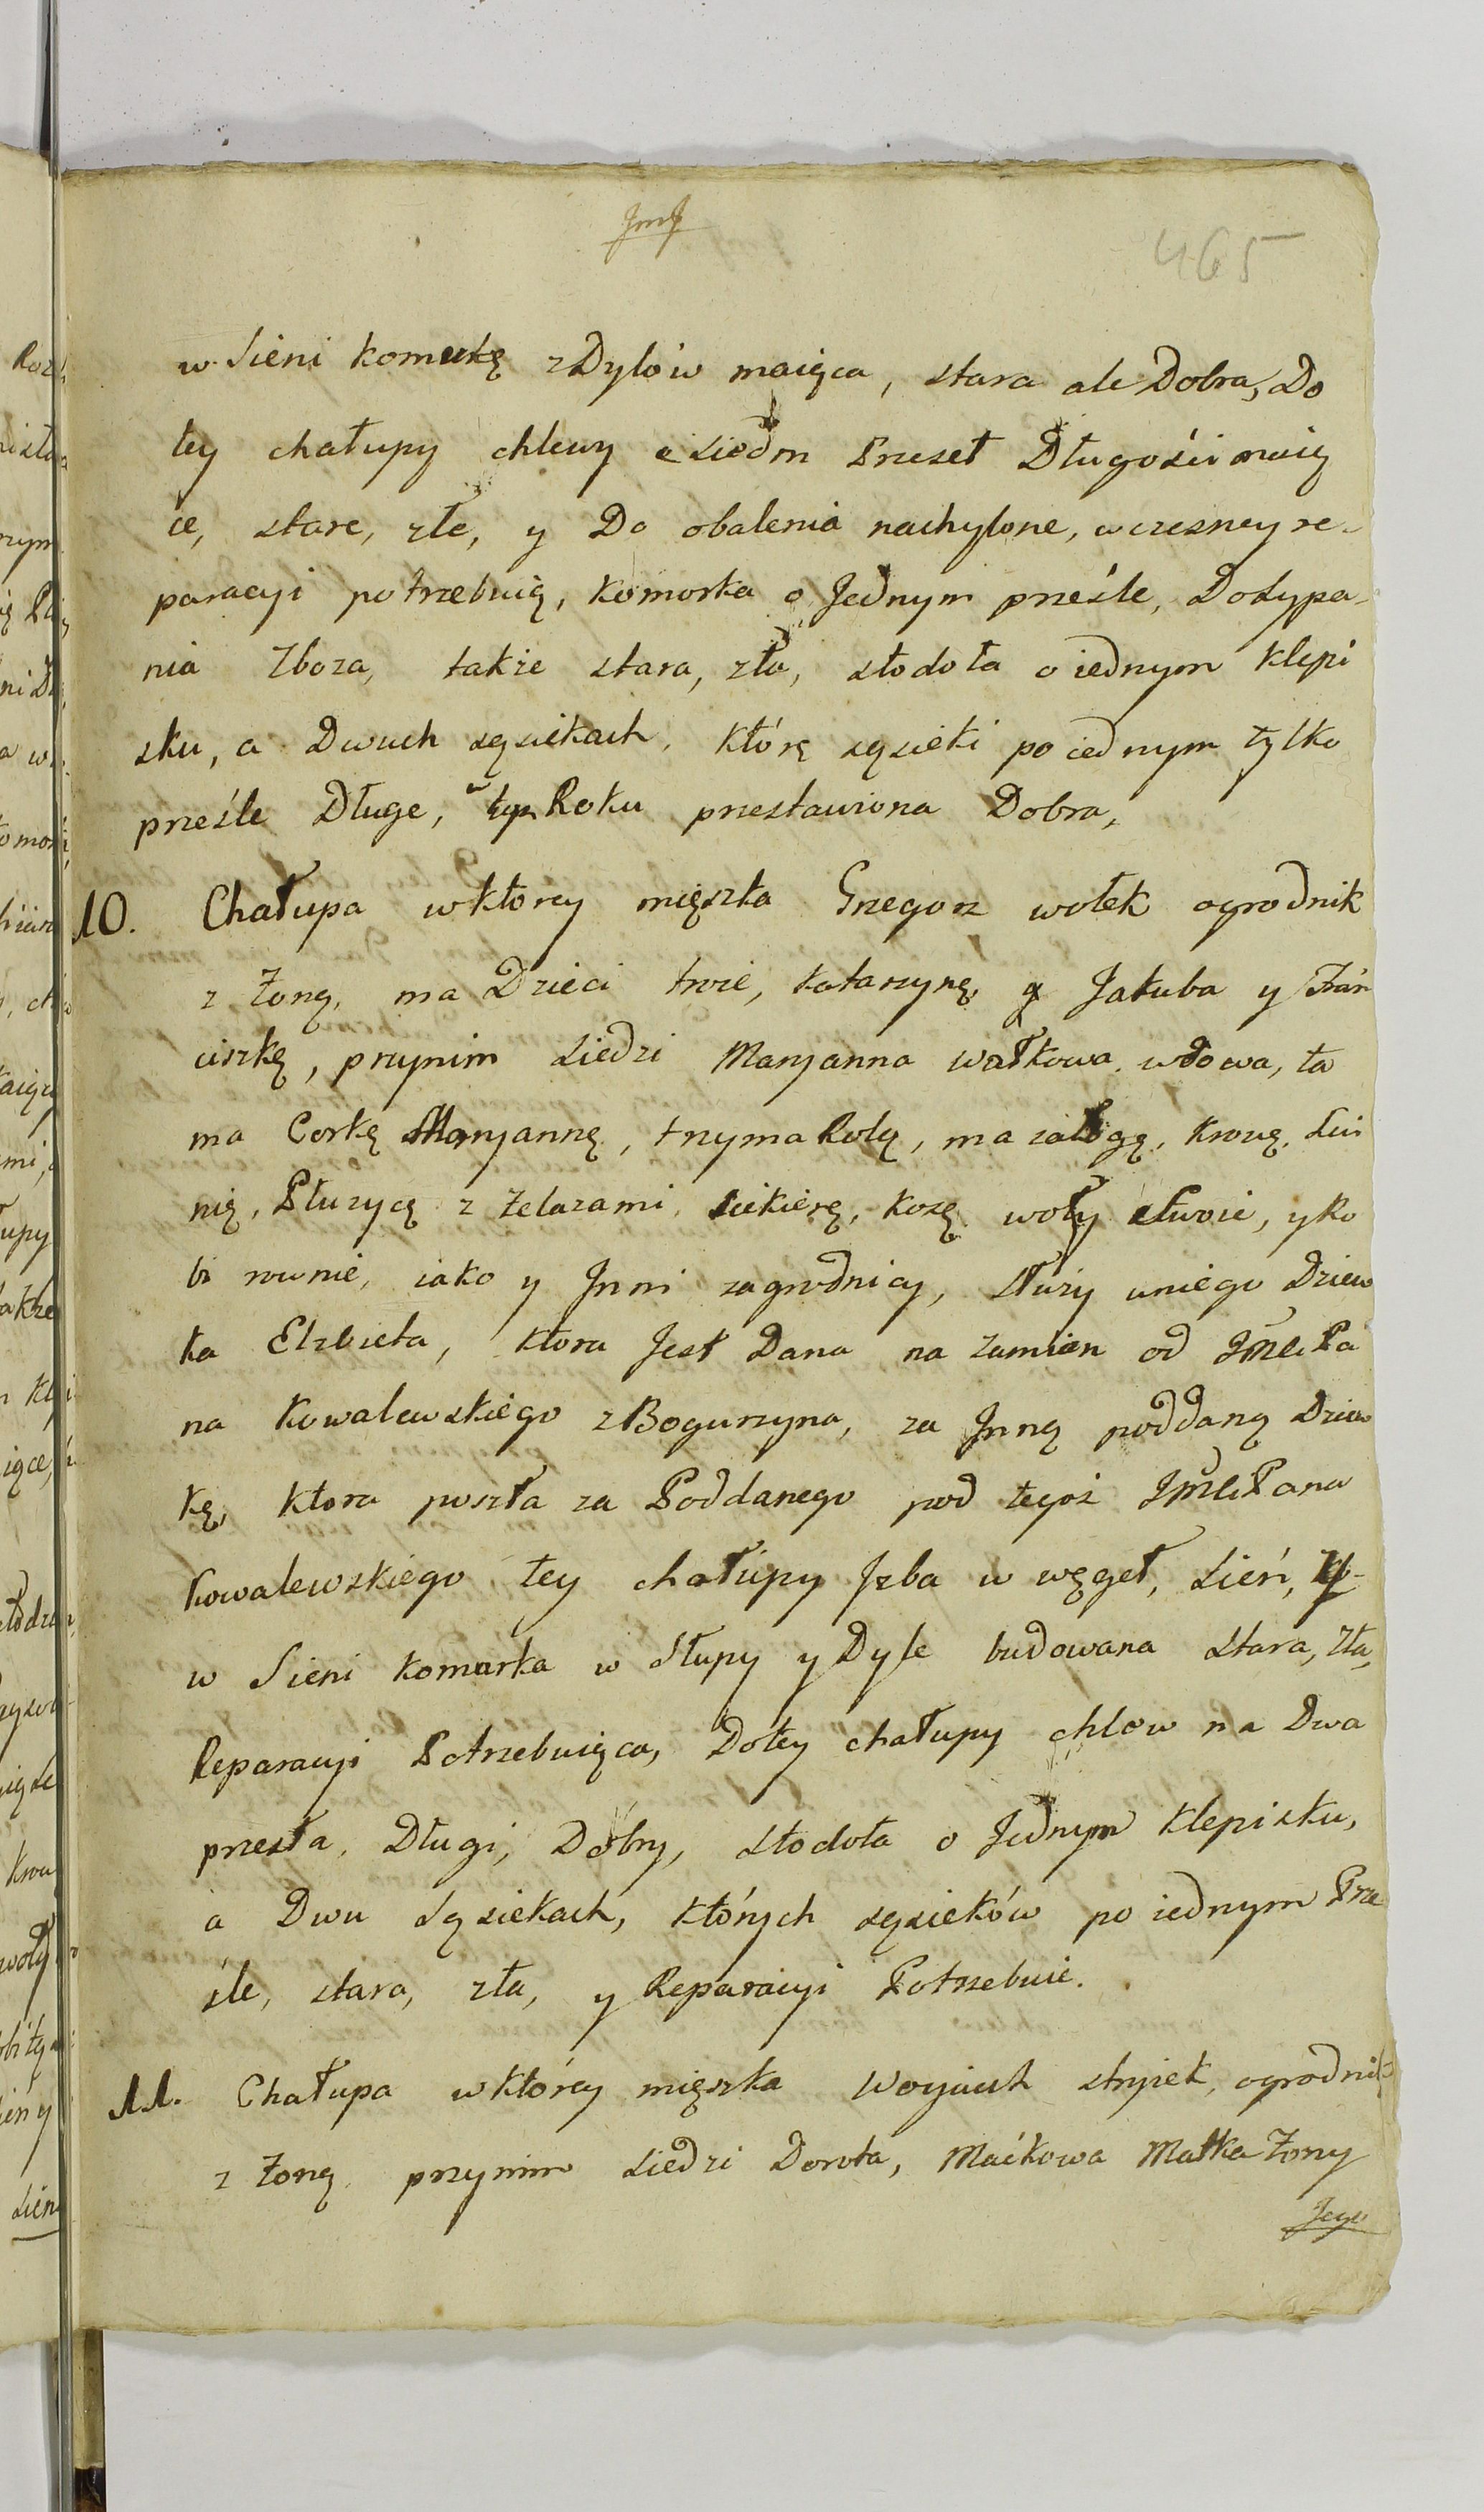 465
w Sieni komurkę z Dylów maiąca, stara ale Dobra, Do
tey chałupy chlewy o siedm Przeseł Długośii maią
ce, stare, złe, y Do obalenia nachylone, wczesney re-
paracyi potrzebuią, komorka o Jednym prześle, Dosypa-
nia Zboza, także stara, zła, stodoła o iednym klepi
sku, a Dwuch sąsiekach, którę sąsieki po iednym tylko
prześle Długe, w Roku przestawiona Dobra,
10. Chałupa wktorey mięszka Grzegorz wołek ogrodnik
z Zoną, ma Dzieci troie, katarzynę, Jakuba y Fran
ciszkę, przynim siedzi Maryanna wałkowa wdowa, ta
ma Corkę Maryannę, trzyma Rolą, ma załogę, krowę, Świ
nią, Płuzycę z żelazami, siekierę, kosę woły Dwoie, y Ro
bi rownie, iako y Jnni zagrodnicy, słuzy uniego Dziew
ka Elzbieta, ktora Jest Dana na zamian od JMCi Pa
na kowalewskiego z Bogurzyna, za Jnną poddaną Dziew
kę, ktora poszła za Poddanego pod tegoż JMCi Pana
kowalewskiego tey chałupy Jzba w węgeł, sień,
w Sieni komurka w Słupy y Dyle budowana stara, zła,
Reparacyi Potrzebuiąca, Dotey chałupy chlow na Dwa
przesła, Długi, Dobry, stodoła o Jednym klepisku,
a Dwu Sąsiekach, których sąsieków po iednym Prze
śle, stara, zła, y Reparacyi Potrzebuie.
11. Chałupa wktórey mięszka Woyciech stryiek, ogrodnik
z Zoną przynim siedzi Dorota, Maćkowa Matka Zony
Jego